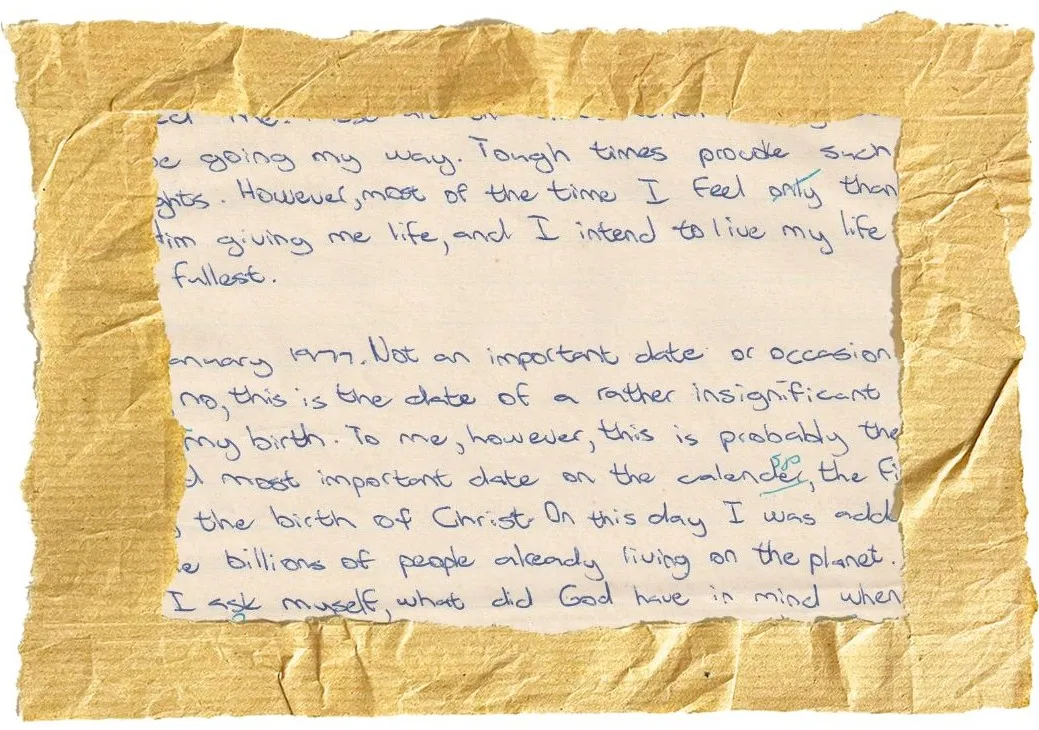 me.
be going my way. Tough times provoke such
ghts. However, most of the time I feel only than
Him giving me life, and I intend to live my life
fullest.
anuary 1977. Not an important date or occasion
no, this is the date of a rather insignificant
my birth. To me, however, this is probably the
d most important date on the calender, the fi
, the birth of Christ. On this day I was add
e billions of people already living on the planet.
I ask myself, what did God have in mind when